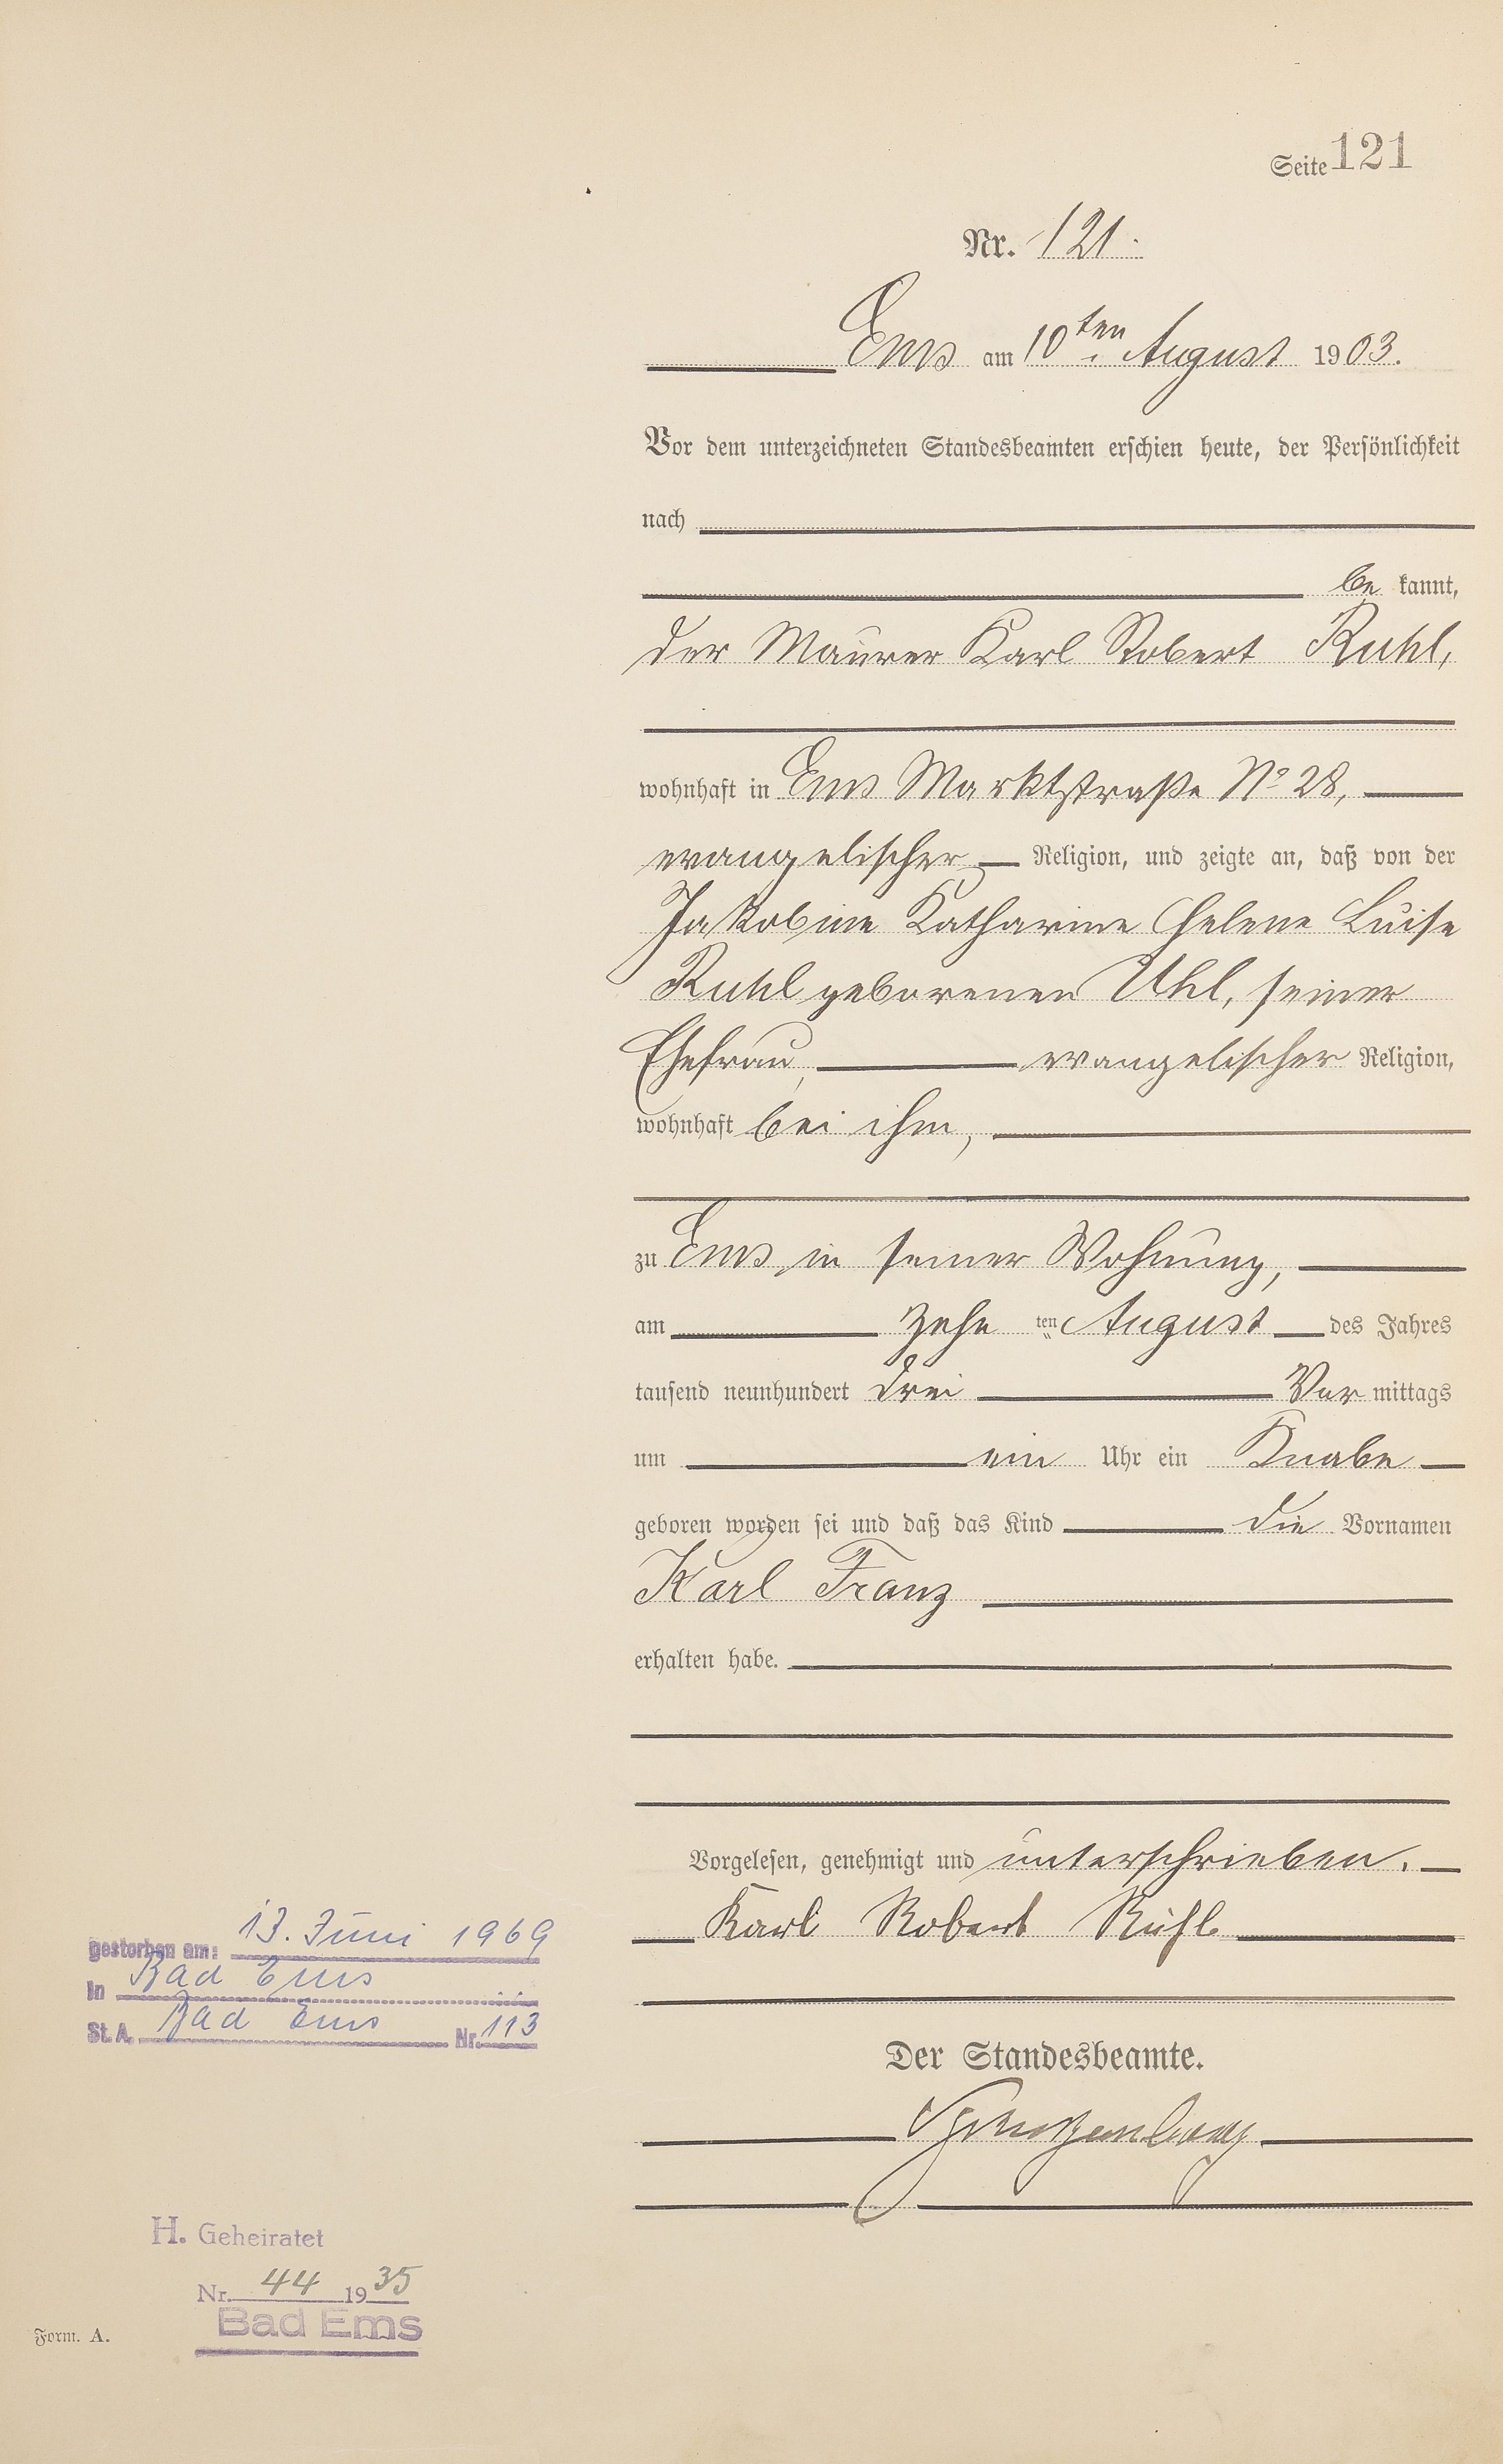 Seite 121
Nr. 121.
Ems am 10ten August 1903.
Vor dem unterzeichneten Standesbeamten erschien heute, der Persönlichkeit
nach
be kannt,
der Maurer Karl Robert Ruhl,
wohnhaft in Ems Marktstraße No 28,
evangelischer Religion, und zeigte an, daß von der
Jakobine Katharine Helene Luise
Ruhl geborenen Uhl, seiner
Ehefrau, evangelischer Religion,
wohnhaft bei ihm,
zu Ems in seiner Wohnung,
am zehn ten August des Jahres
tausend neunhundert drei Vor mittags
um ein Uhr ein Knabe
geboren worden sei und daß das Kind die Vornamen
Karl Franz
erhalten habe.
Vorgelesen, genehmigt und unterschrieben.
Karl Robert Ruhl
Der Standesbeamte.
gestorben am: 13. Juni 1969
in Bad Ems
St. A. Bad Ems Nr. 113
H. Geheiratet
Nr. 44 1935
Bad Ems
Form. A.